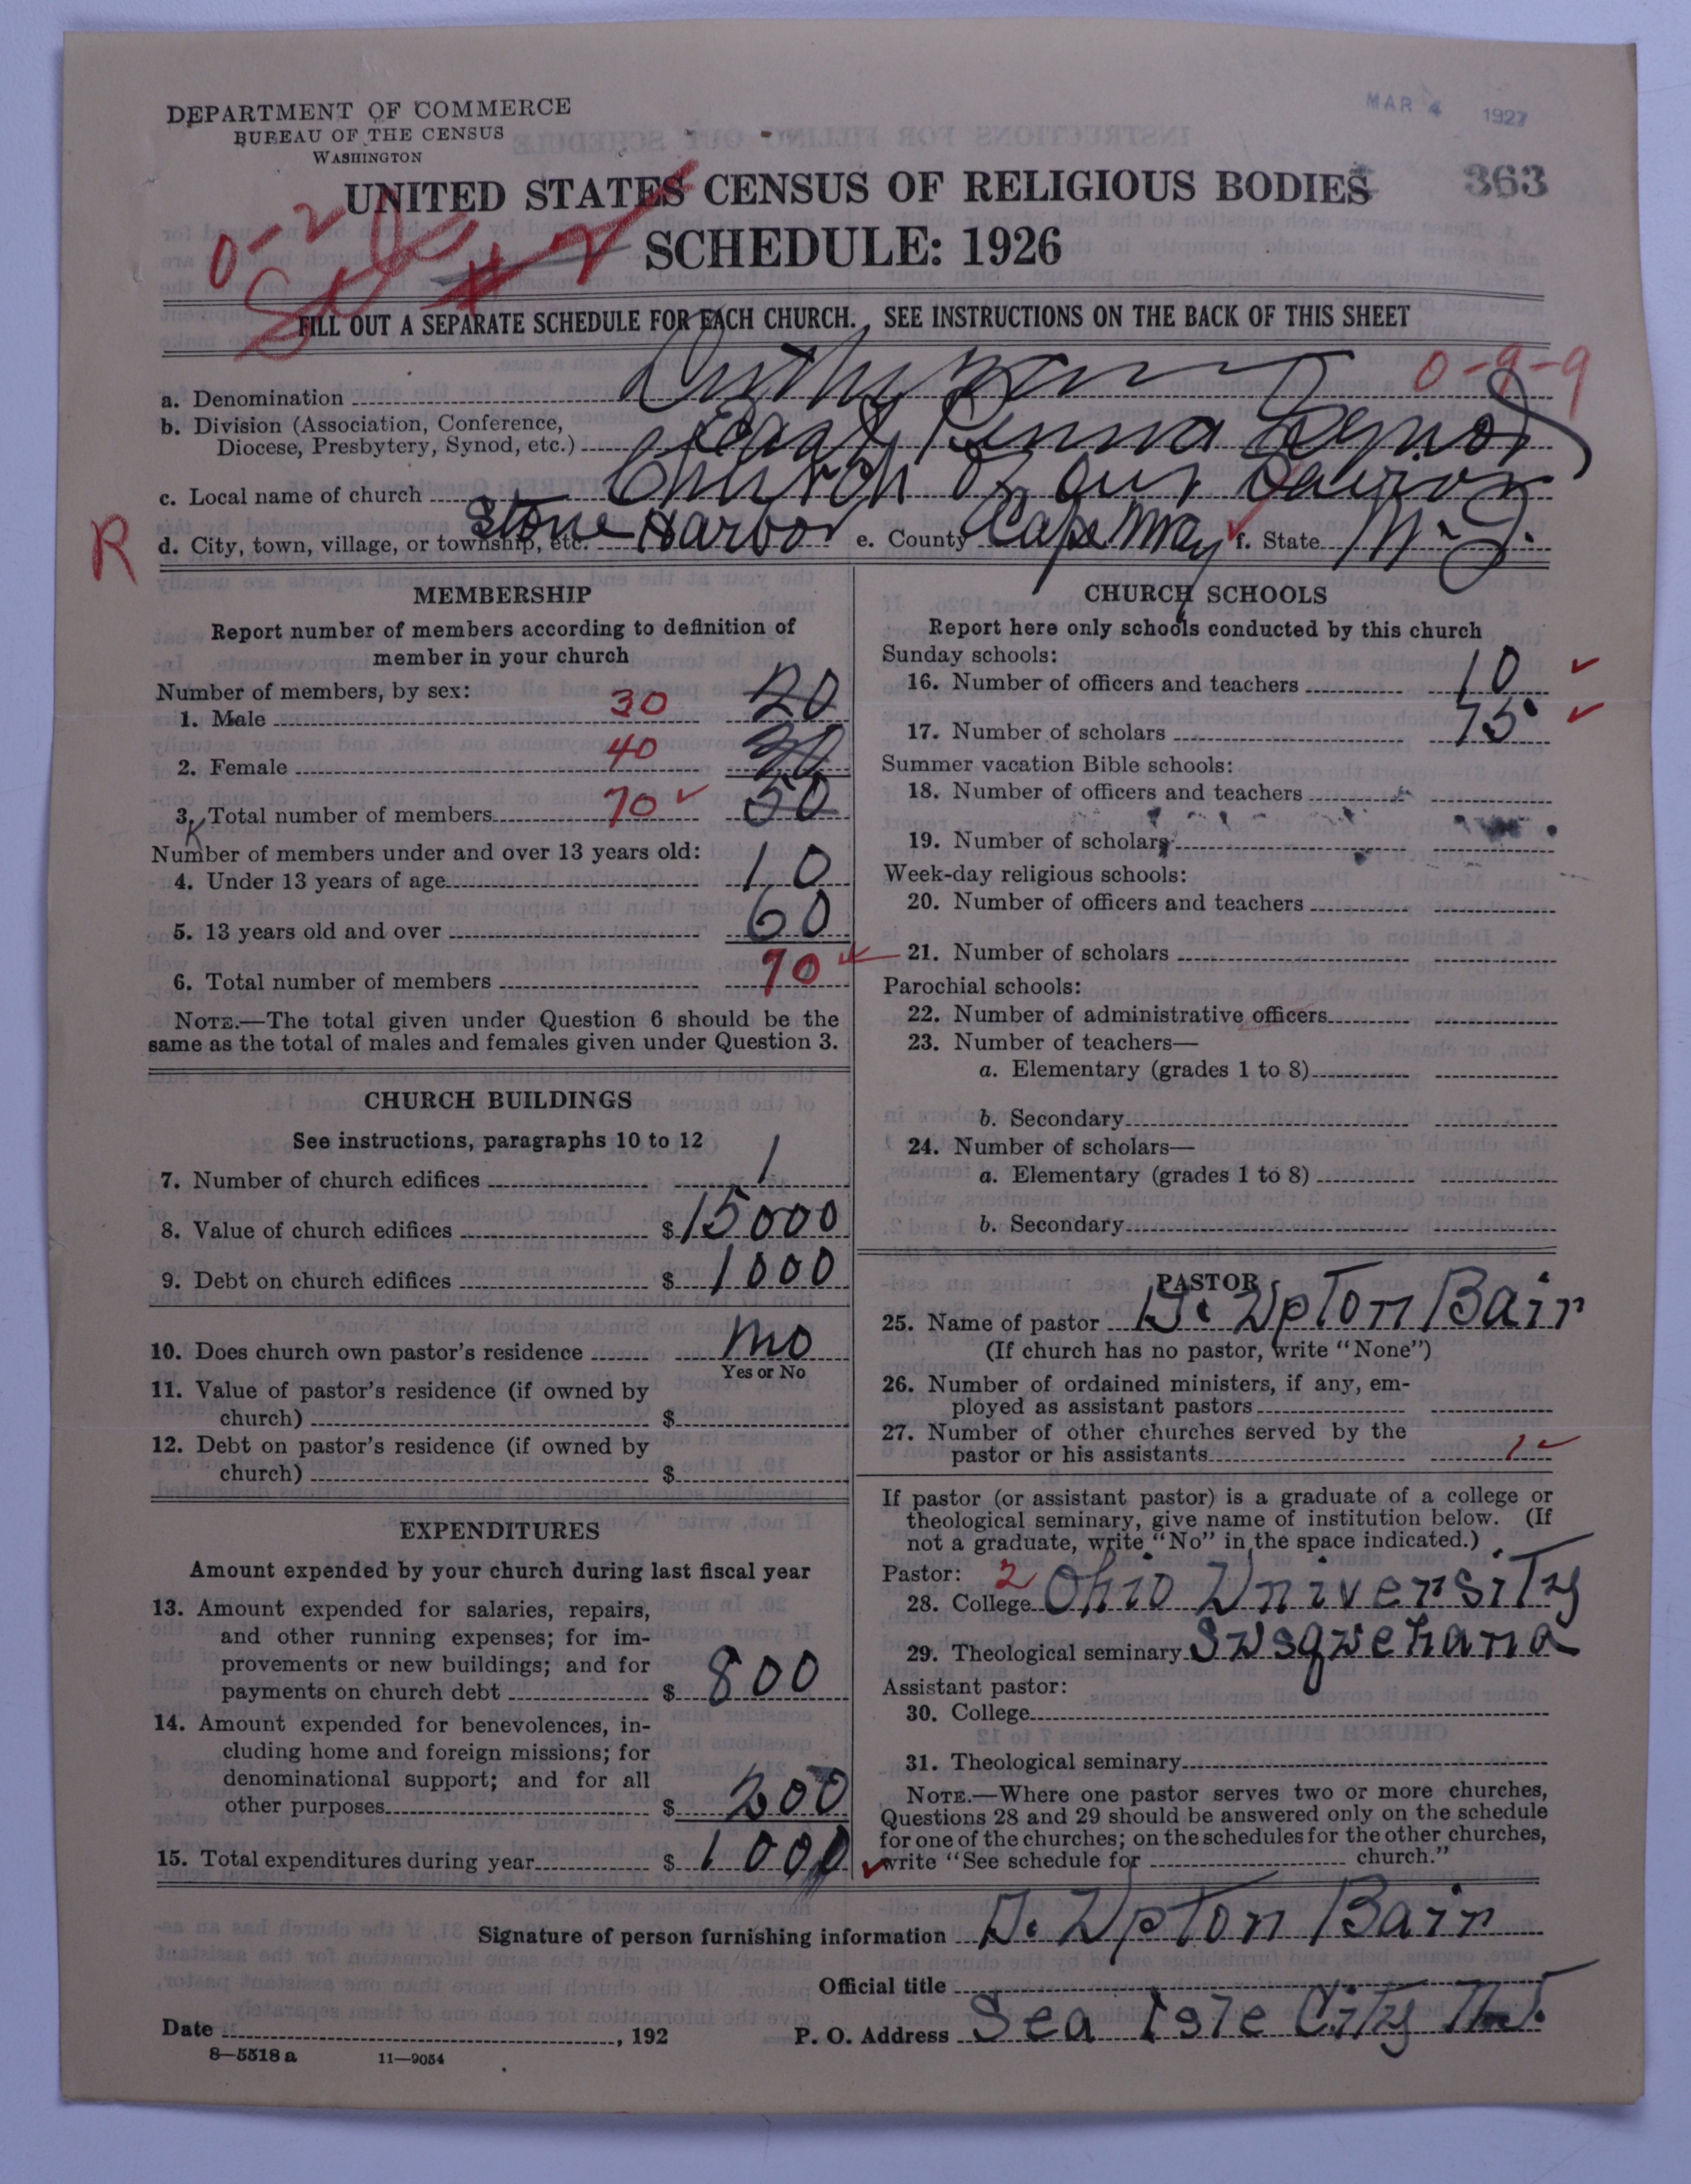 DEPARTMENT OF COMMERCE
BUREAU OF THE CENSUS
WASHINGTON
MAR 4 1927
363
UNITED STATES CENSUS OF RELIGIOUS BODIES
SCHEDULE: 1926
0-2
#2
FILL OUT A SEPARATE SCHEDULE FOR EACH CHURCH. SEE INSTRUCTIONS ON THE BACK OF THIS SHEET
0-9-9
a. Denomination Lutheran
b. Division (Association, Conference,
Diocese, Presbytery, Synod, etc.) East Penna Synod
c. Local name of church Church of our Saviour
R
d. City, town, village, or township, etc. Stone Harbor e. County Cape May f. State N. J.
MEMBERSHIP
Report number of members according to definition of
member in your church
Number of members, by sex:
1. Male 30 20
2. Female 40 30
3. Total number of members 70 50
Number of members under and over 13 years old:
4. Under 13 years of age 10
5. 13 years old and over 60
6. Total number of members 70
NOTE.—The total given under Question 6 should be the
same as the total of males and females given under Question 3.
CHURCH BUILDINGS
See instructions, paragraphs 10 to 12
7. Number of church edifices 1
8. Value of church edifices $15000
9. Debt on church edifices $ 1000
10. Does church own pastor's residence no
Yes or No
11. Value of pastor's residence (if owned by
church) $
12. Debt on pastor's residence (if owned by
church) $
EXPENDITURES
Amount expended by your church during last fiscal year
13. Amount expended for salaries, repairs,
and other running expenses; for im-
provements or new buildings; and for
payments on church debt $ 800
14. Amount expended for benevolences, in-
cluding home and foreign missions; for
denominational support; and for all
other purposes $ 200
15. Total expenditures during year $ 1000
CHURCH SCHOOLS
Report here only schools conducted by this church
Sunday schools:
16. Number of officers and teachers 10
17. Number of scholars 75
Summer vacation Bible schools:
18. Number of officers and teachers
19. Number of scholars
Week-day religious schools:
20. Number of officers and teachers
21. Number of scholars
Parochial schools:
22. Number of administrative officers
23. Number of teachers—
a. Elementary (grades 1 to 8)
b. Secondary
24. Number of scholars—
a. Elementary (grades 1 to 8)
b. Secondary
PASTOR
25. Name of pastor D. Upton Bair
(If church has no pastor, write "None")
26. Number of ordained ministers, if any, em-
ployed as assistant pastors
27. Number of other churches served by the
pastor or his assistants 1
If pastor (or assistant pastor) is a graduate of a college or
theological seminary, give name of institution below. (If
not a graduate, write "No" in the space indicated.)
Pastor: 2
28. College Ohio University
29. Theological seminary Susquehana
Assistant pastor:
30. College
31. Theological seminary
NOTE.—Where one pastor serves two or more churches,
Questions 28 and 29 should be answered only on the schedule
for one of the churches; on the schedules for the other churches,
write "See schedule for church."
Signature of person furnishing information D. Upton Bair
Official title
Date , 192 P. O. Address Sea Isle City N.J.
8—5518 a 11—9054